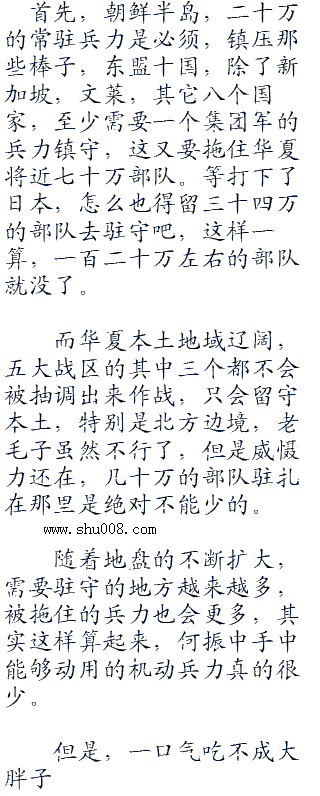 首先，朝鲜半岛，二十万
的常驻兵力是必须，镇压那
些棒子，东盟十国，除了新
加坡，文莱，其它八个国
家，至少需要一个集团军的
兵力镇守，这又要拖住华夏
将近七十万部队。等打下了
日本，怎么也得留三十四万
的部队去驻守吧，这样一
算，一百二十万左右的部队
就没了。
而华夏本土地域辽阔，
五大战区的其中三个都不会
被抽调出来作战，只会留守
本土，特别是北方边境，老
毛子虽然不行了，但是威慑
力还在，几十万的部队驻扎
在那里是绝对不能少的。
www.shu008.com
随着地盘的不断扩大，
需要驻守的地方越来越多，
被拖住的兵力也会更多，其
实这样算起来，何振中手中
能够动用的机动兵力真的很
少。
但是，一口气吃不成大
胖子